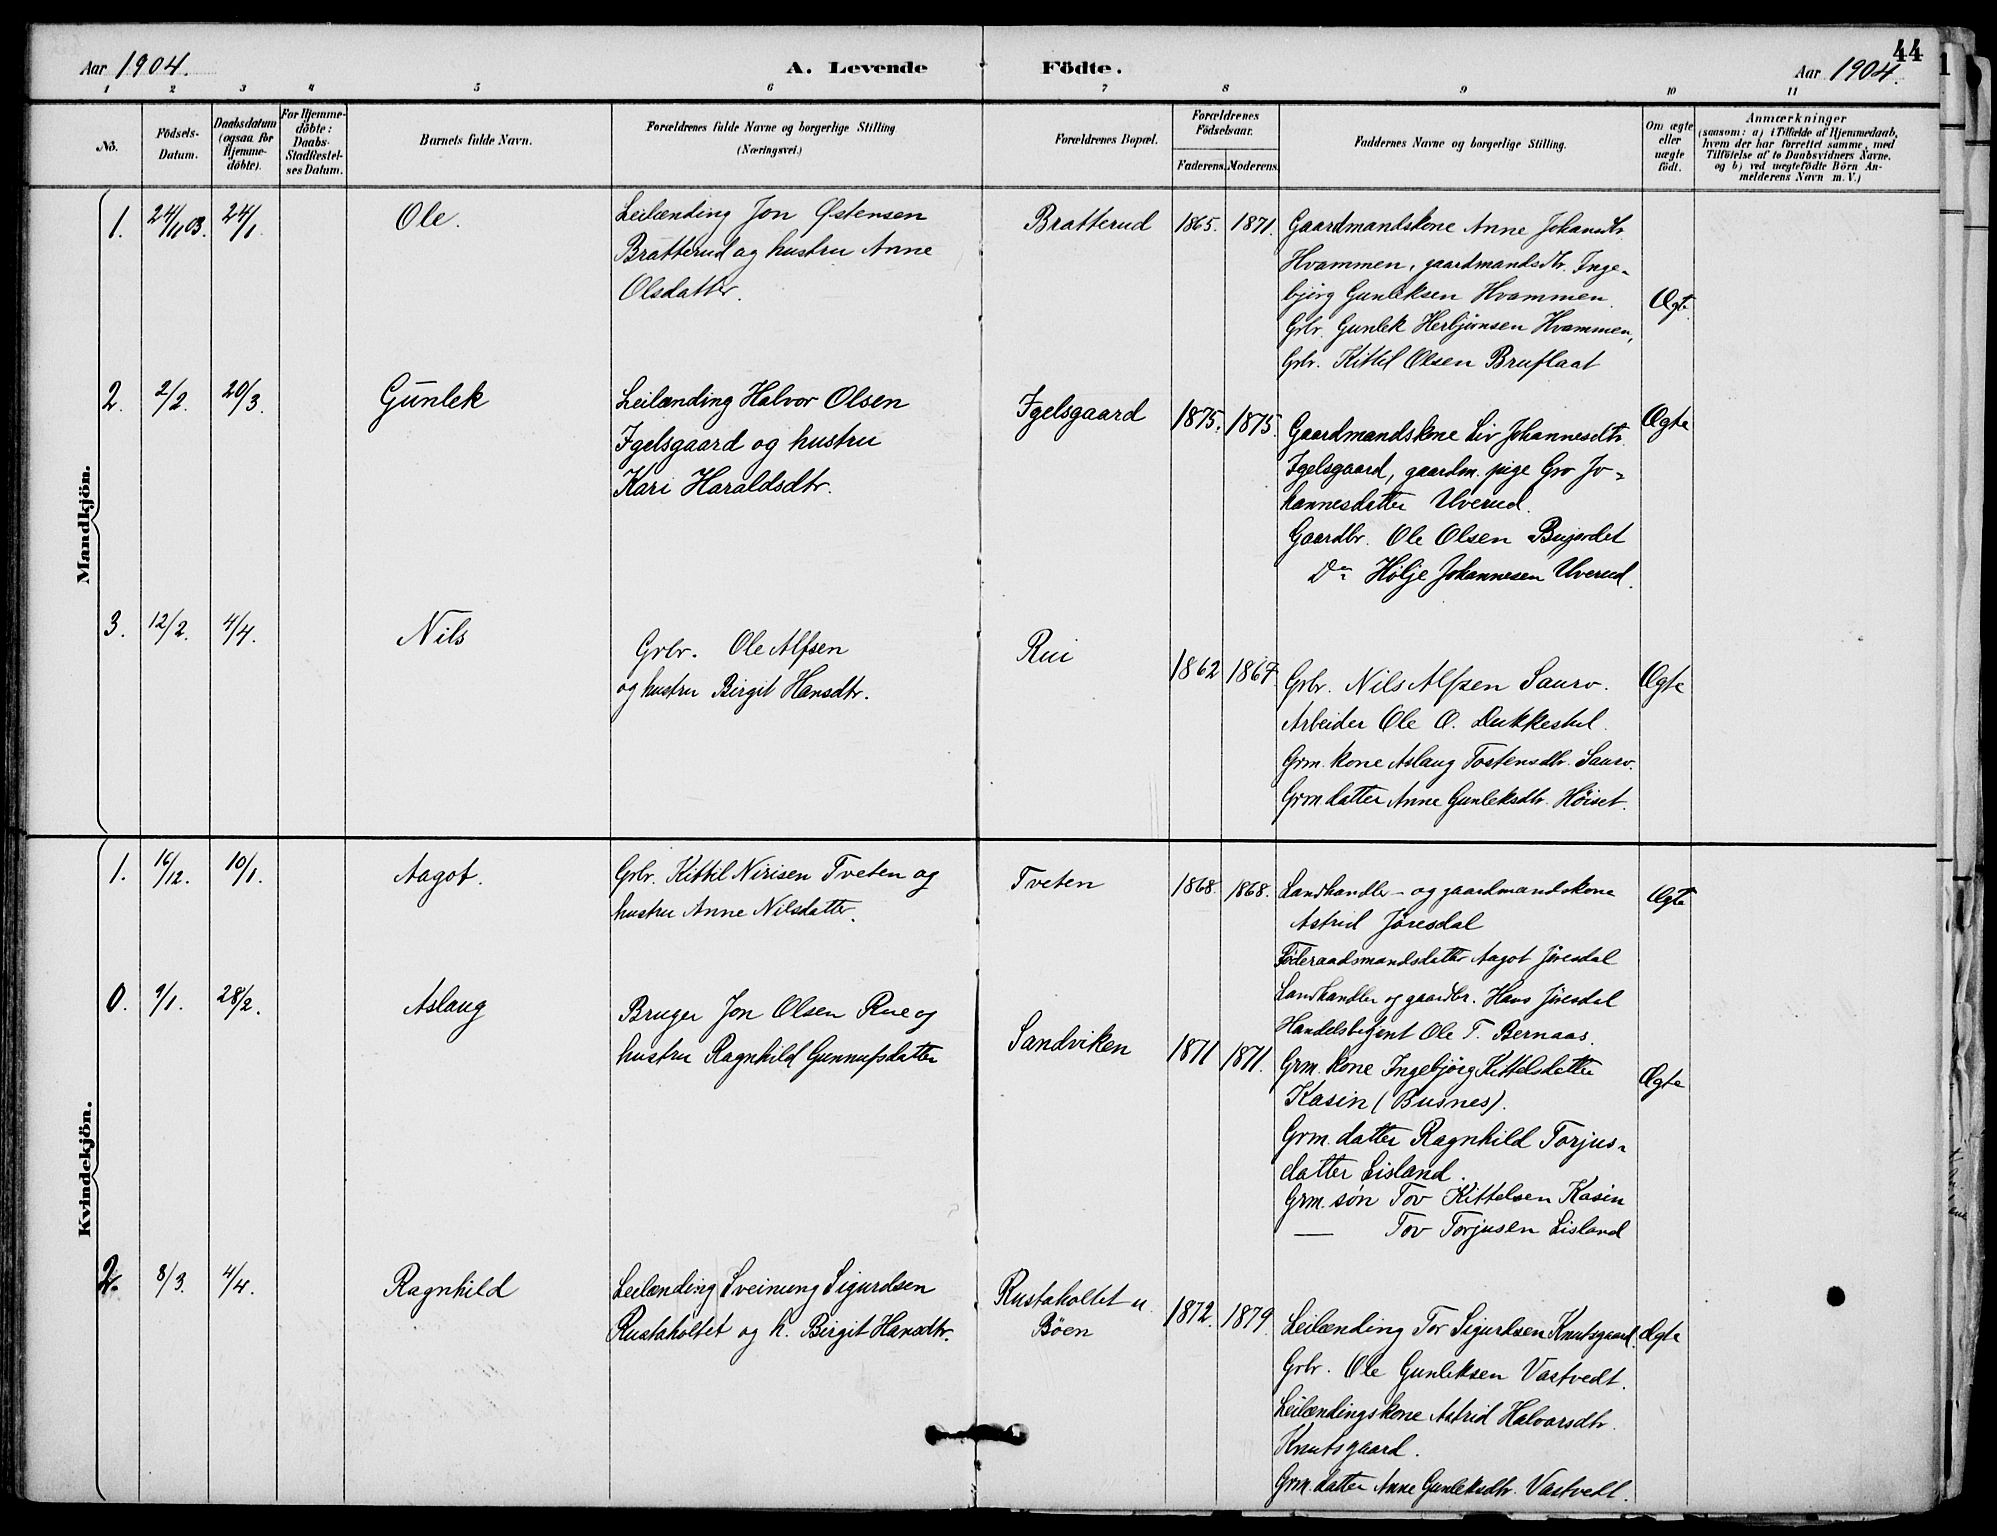 44
Aar 1904. A. Levende Födte. Aar 1904.
1 2 3 4 5 6 7 8 9 10 11
No.
Födsels-
Datum.
Daabsdatum
(ogsaa for
Hjemme-
döbte).
For Hjemme-
döbte:
Daabs-
Stadfæstel-
ses Datum.
Barnets fulde Navn.
Forældrenes fulde Navne og borgerlige Stilling
(Næringsvei.)
Forældrenes Bopæl.
Forældrenes
Födselsaar.
Faderens. Moderens.
Faddernes Navne og borgerlige Stilling.
Om ægte
eller
uægte
födt.
Anmærkninger
(saasom: a) i Tilfælde af Hjemmedaab,
hvem der har forrettet samme, med
Tilföielse af to Daabsvidners Navne.
og b) ved uægtefödte Börn An-
melderens Navn m. V.)
Mandkjön.
1. 24/11 03. 24/1. Ole.
Leilænding Jon Østensen
Bratterud og hustru Anne
Olsdatter.
Bratterud 1865. 1871.
Gaardmandskone Anne Johansdtr.
Hvammen, gaardmandsdtr. Inge-
bjørg Gunleksen Hvammen.
Grbr. Gunlek Herbjørnsen Hvammen,
Grbr. Kittil Olsen Bruflaat
Ægte.
2. 2/2. 20/3. Gunlek
Leilænding Halvor Olsen
Igelsgaard og hustru
Kari Haraldsdtr.
Igelsgaard 1875. 1875.
Gaardmandskone Liv Johannesdtr.
Igelsgaard, gaardm. pige Gro Jo-
hannesdatter Uverud.
Gaardbr. Ole Olsen Bujordet
Do Hølje Johannesen Uverud.
Ægte
3. 12/2. 4/4. Nils
Grbr. Ole Alfsen
og hustru Birgit Hansdtr.
Rui 1862 1867.
Grbr. Nils Alfsen Sauro.
Arbeider Ole O. Dukkestul.
Grm. kone Aslaug Tostensdtr. Sauro.
Grm. datter Anne Gunleksdtr. Høiset.
Ægte
Kvindekjön.
1. 16/12. 10/1. Aagot.
Grbr. Kittil Nirisen Tveten og
hustru Anne Nilsdatter.
Tveten 1868. 1868.
Landhandler- og gaardmandskone
Astrid Jøresdal
Føderaadsmandsdatter Aagot Jøresdal
Landhandler og gaardbr. Hans Jøresdal
Handelsbetjent Ole T. Bernaas.
Ægte
0. 9/1. 28/2. Aslaug
Bruger Jon Olsen Rue og
hustru Ragnhild Gunnufsdatter
Sandviken 1871 1871.
Grm. kone Ingebjørg Kittelsdatter
Kasin (Busnes).
Grm. datter Ragnhild Torjus-
datter Lisland.
Grm. søn Tov Kittelsen Kasin
— Tov Torjusen Lisland
Ægte
2. 8/3. 4/4. Ragnhild
Leilænding Sveinung Sigurdsen
Rustaholtet og h. Birgit Hansdtr.
Rustaholtet u.
Böen
1872. 1879.
Leilænding Tor Sigurdsen Knutsgaard.
Grbr. Ole Gunleksen Vastvedt.
Leilændingskone Astrid Halvorsdtr.
Knutsgaard.
Grm. datter Anne Gunleksdtr. Vastvedt.
Ægte